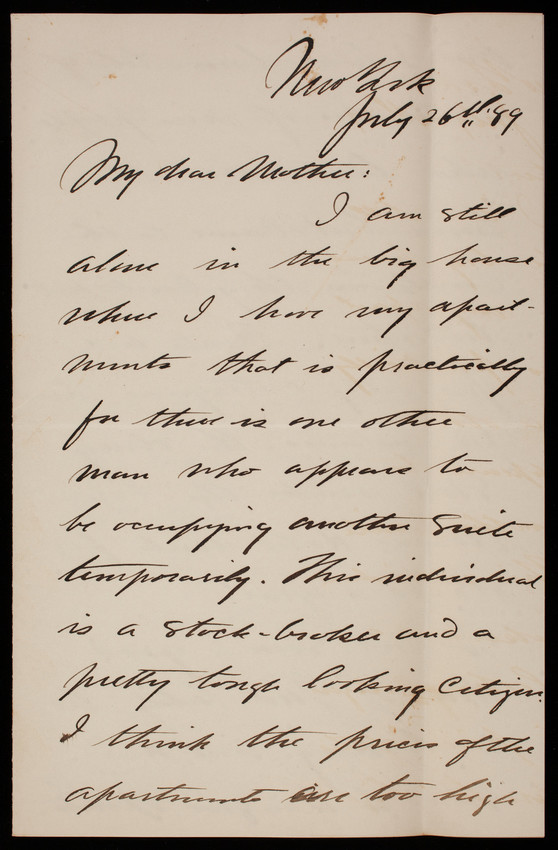 New York
July 26th 89
My dear Mother:
I am still
alone in the big house
where I have my apart-
ments that is practically
for there is one other
man who appears to
be occupying another suite
temporarily. This individual
is a stock-broker and a
pretty tough looking citizen.
I think the prices of the
apartments are too high